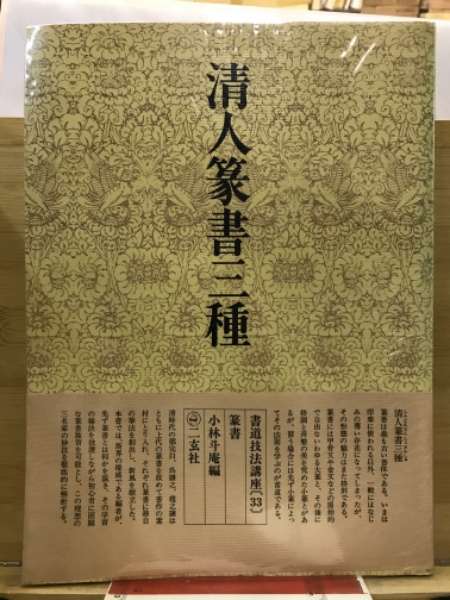 清人篆書三種
清人篆書三種
篆書は最も古い書体である。いまは
印章に使われる以外、一般にはなじ
みの薄い存在になってしまったが、
その形態の魅力はまた格別である。
篆書には甲骨文や金文などの原始的
で自由ないわゆる大篆と、その後に
格調と斉整の美を極めた小篆とがあ
るが、習う場合には先ず小篆によっ
てその法則を学ぶのが常道である。
書道技法講座〔33〕
篆書
小林斗庵編
二玄社
清時代の鄧完白、呉讓之、趙之謙は
ともに上代の篆書を収めて書作の素
材にとり入れ、それぞれ篆書に独自
の筆法を創出し、新風を樹立した。
本書では、斯界の権威である編者が、
先ず篆書とは何かを説き、その学習
の秘訣を披瀝しながら初心者に困難
な篆書独習を可能とし、この理想の
三名家の秘技を徹底的に解析する。